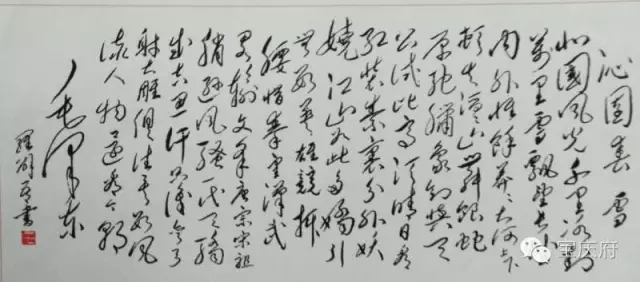 沁園春 雪
北國风光千里冰封
万里雪飘望长城
内外惟馀莽莽大河上下
顿失滔滔山舞银蛇
原驰腊象欲与天
公试比高须晴日看
红装素裹分外妖
娆江山如此多嬌引
无数英雄竞折
腰惜秦皇汉武
略输文采唐宗宋祖
稍逊风骚一代天骄
成吉思汗只识弯弓
射大雕俱往矣数风
流人物还看今朝
毛泽东
書
宝庆府